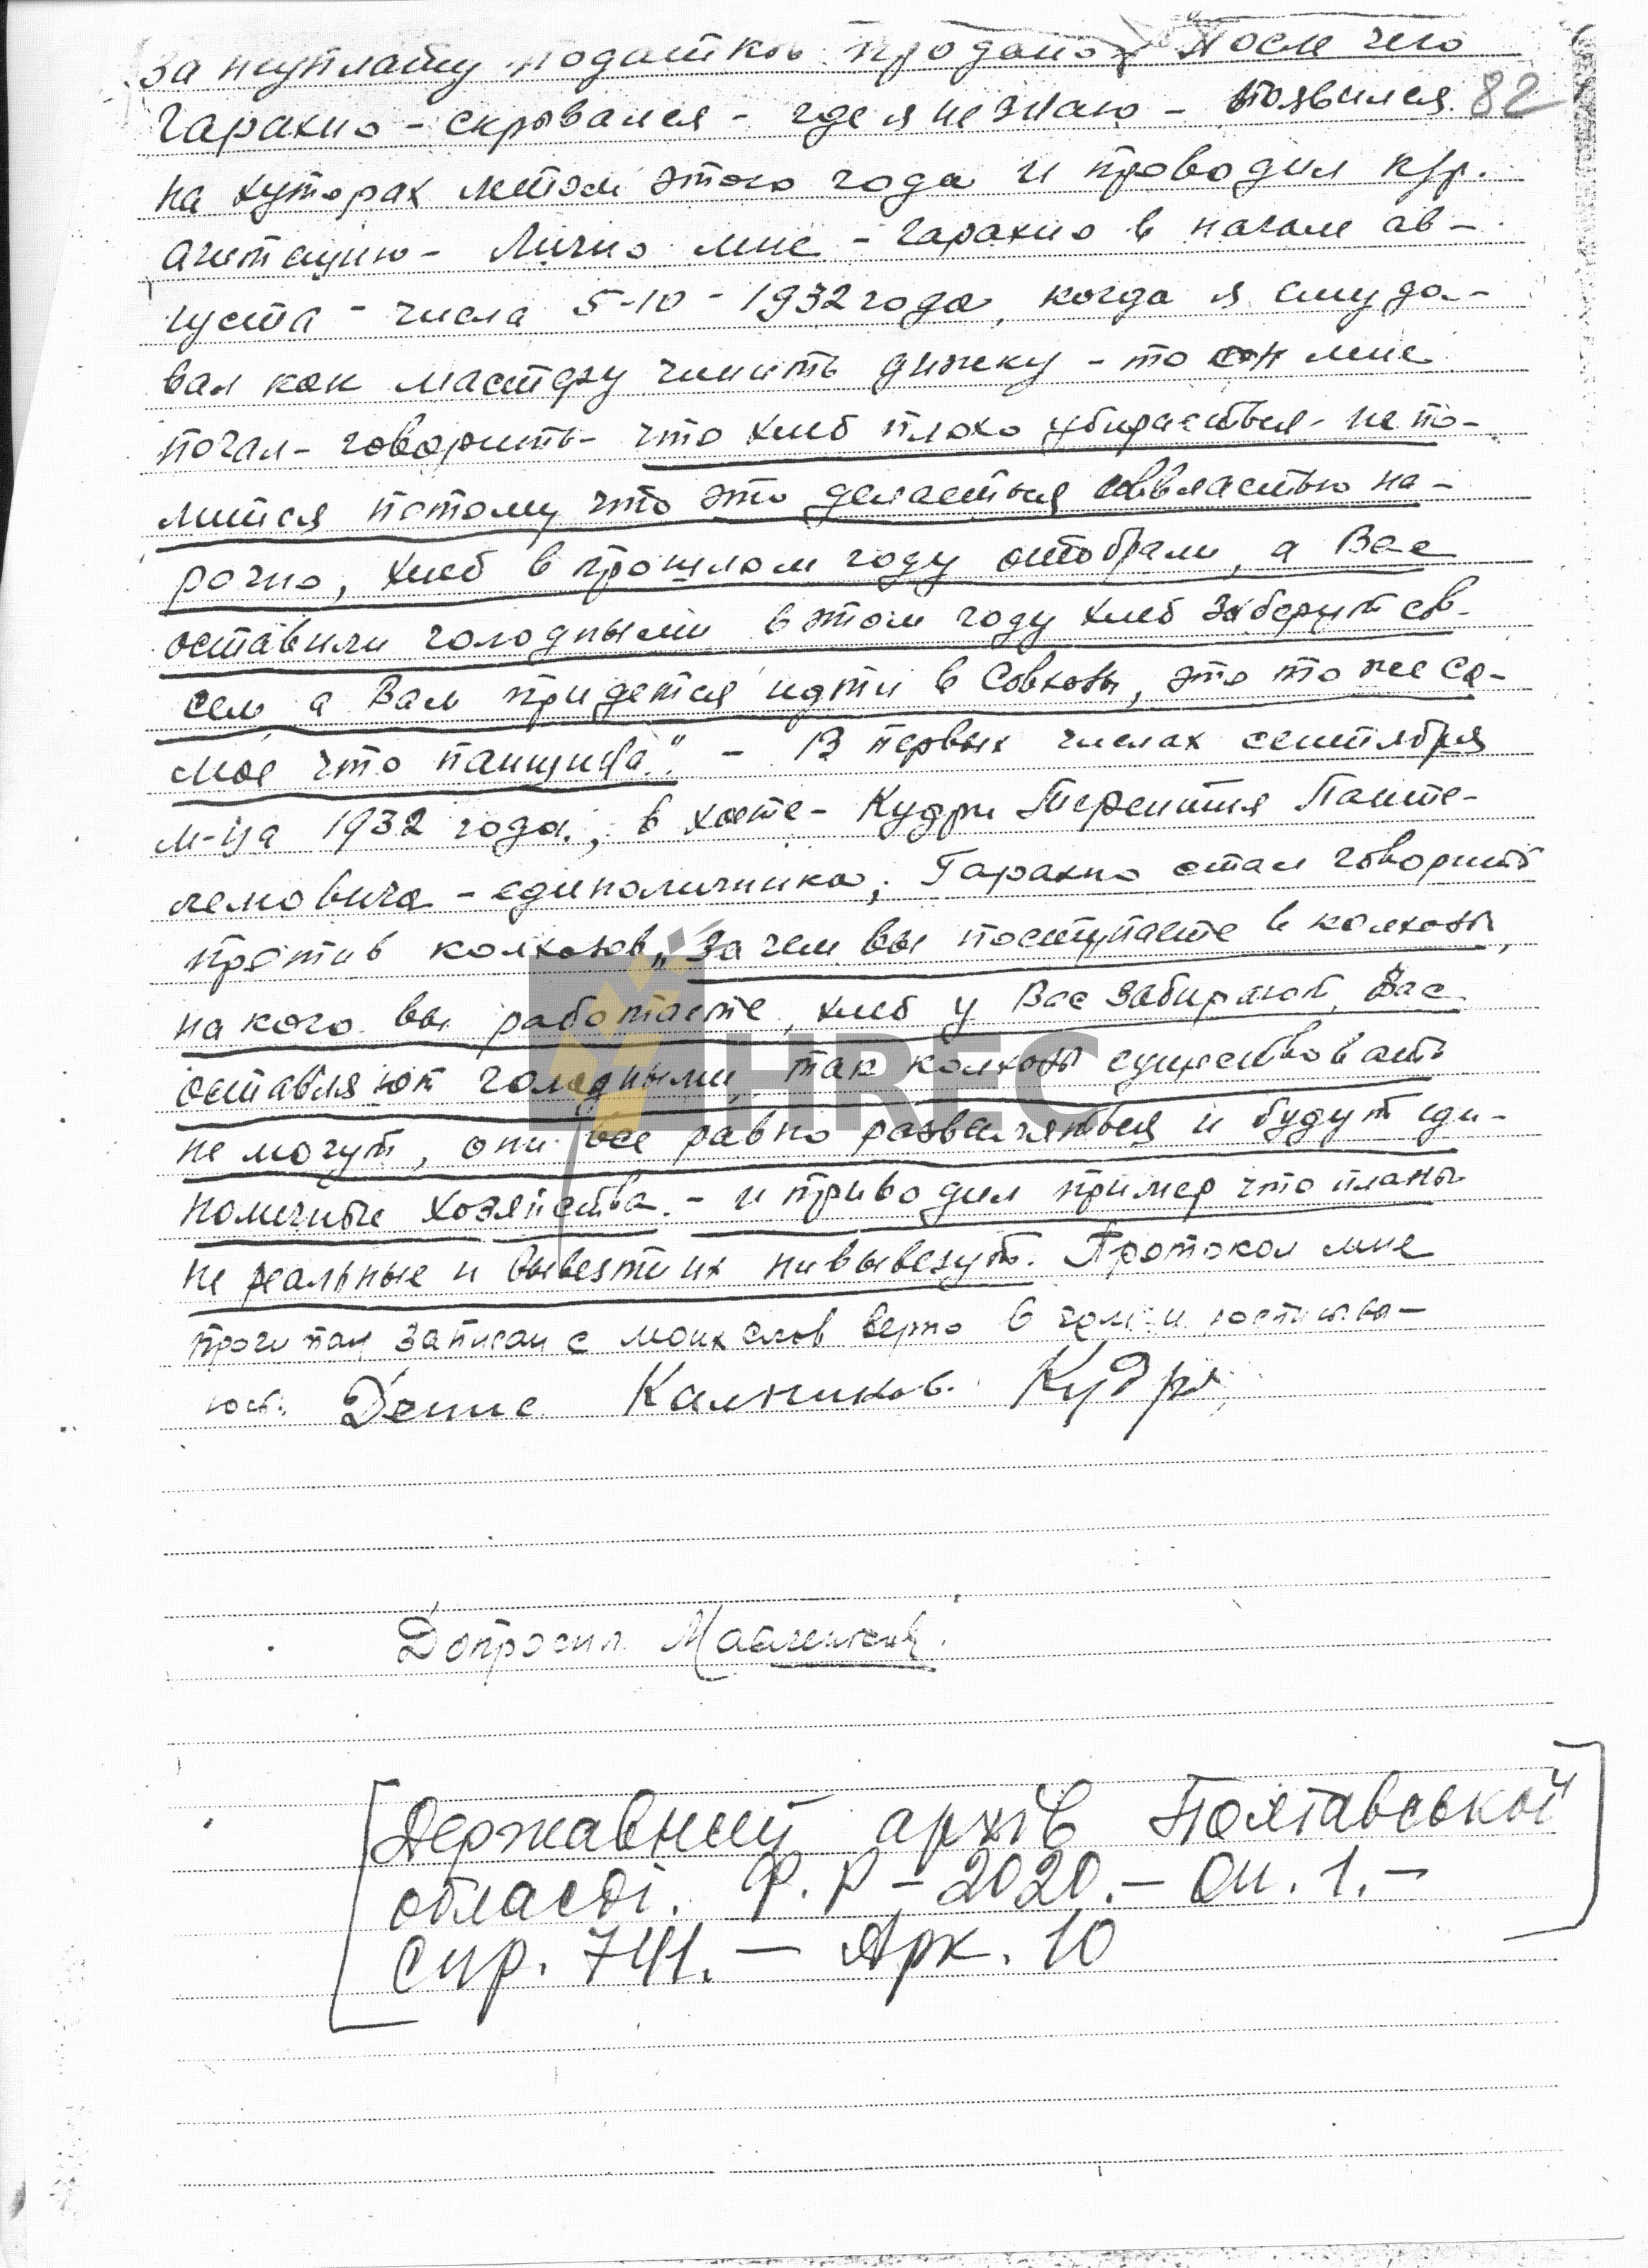 за неуплату податков продано. После чего
Гарахно - скрывался - где я не знаю - появился 82
на хуторах летом этого года и проводил к/р.
агитацию - Лично мне - Гарахно в начале ав-
густа - числа 5-10 - 1932 года, когда я ему да-
вал как мастеру чинить дижку - то он мне
почал - говорить - что хлеб плохо убираеться - не по-
лится потому что это делаеться соввластью на-
рочно, хлеб в прошлом году отобрали, а Вас
оставили голодными в этом году хлеб заберут св-
сем, а Вам придется идти в Совхозы, это то же са-
мое что панщина". - В первых числах сентября
м-ца 1932 года, в хате - Кудри Терентия Панте-
лемовича - единоличника, Гарахно стал говорить
против колхозов „Зачем вы поступаете в колхозы,
на кого вы работаете, хлеб у Вас забирают, Вас
оставляют голодными, так колхозы существовать
не могут, они все равно разваляться и будут еди-
ноличные хозяйства. - и приводил пример что планы
не реальные и вывезти их нивывезут. Протокол мне
прочитан записан с моих слов верно в чем и
Денис Калников. Кудря
Допросил
[Державний архів Полтавської
області. Ф. Р - 2020. - Оп. 1. -
Спр. 741. - Арк. 10]
HREC